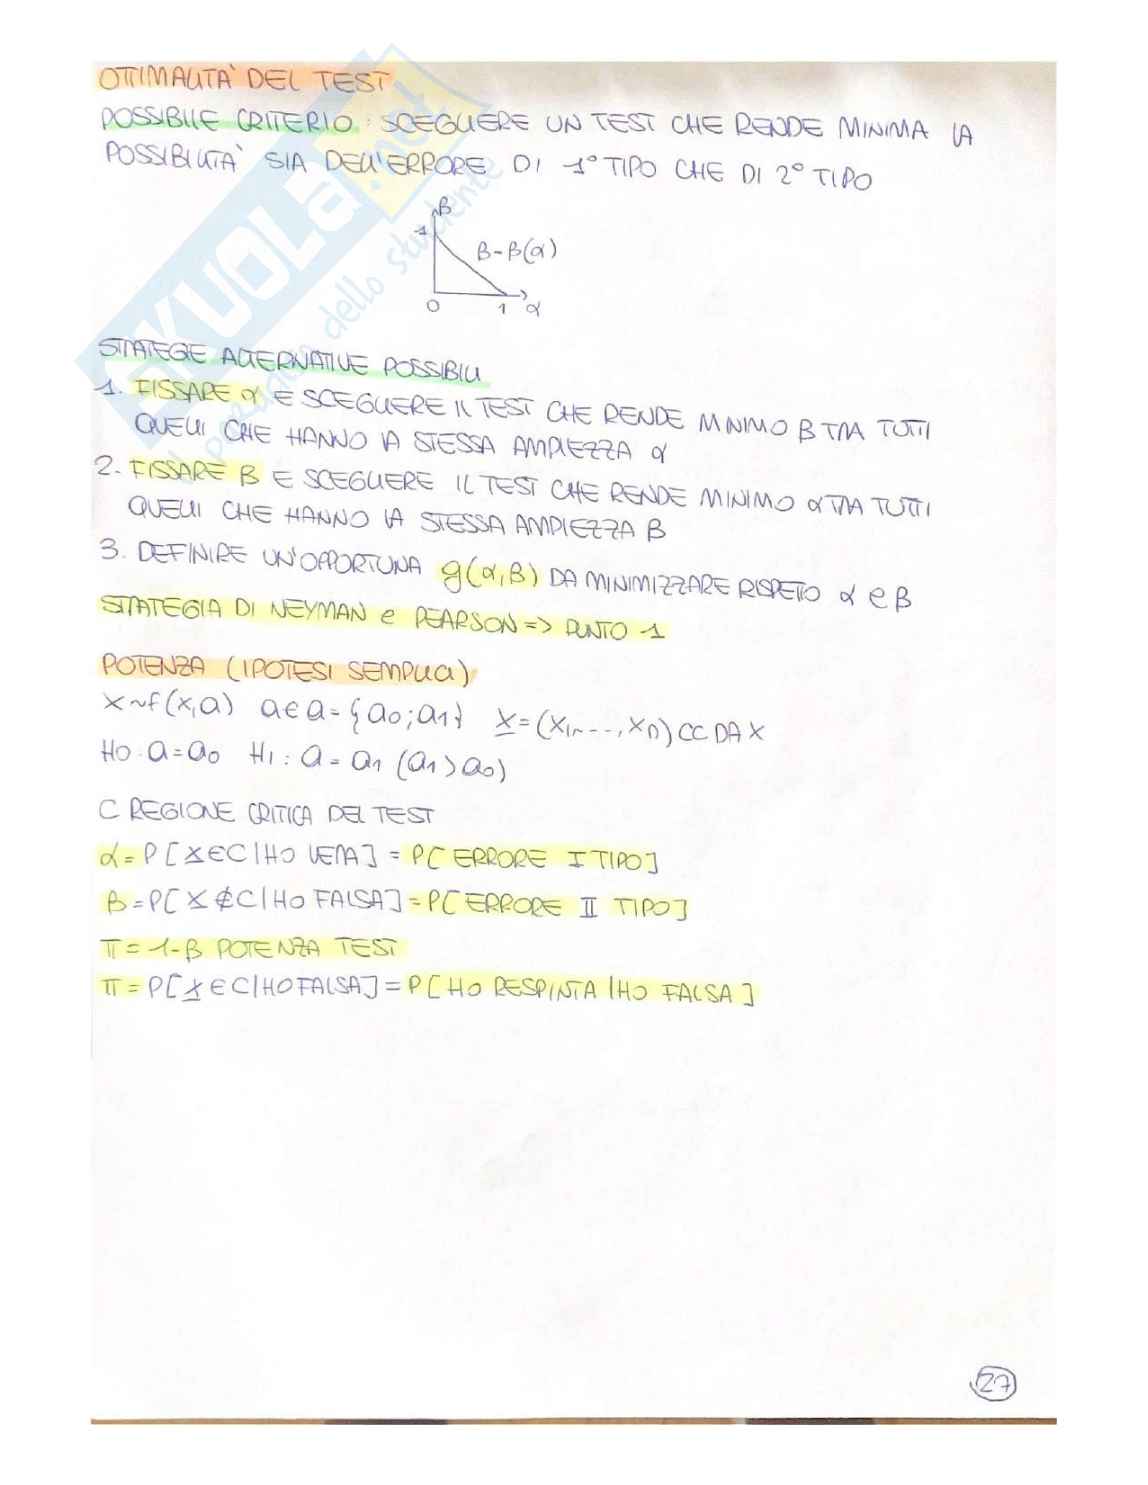 OTTIMALITA' DEL TEST
POSSIBILE CRITERIO: SCEGLIERE UN TEST CHE RENDE MINIMA LA
POSSIBILITA' SIA DELL'ERRORE DI 1° TIPO CHE DI 2° TIPO
β
1
β-β(α)
0 1 α
STRATEGIE ALTERNATIVE POSSIBILI
1. FISSARE α E SCEGLIERE IL TEST CHE RENDE MINIMO β TRA TUTTI
QUELLI CHE HANNO LA STESSA AMPIEZZA α
2. FISSARE β E SCEGLIERE IL TEST CHE RENDE MINIMO α TRA TUTTI
QUELLI CHE HANNO LA STESSA AMPIEZZA β
3. DEFINIRE UN'OPPORTUNA g(α,β) DA MINIMIZZARE RISPETTO α e β
STRATEGIA DI NEYMAN e PEARSON => PUNTO 1
POTENZA (IPOTESI SEMPLICI)
X~f(x,a) a∈a={a0;a1} X=(X1,...,Xn) CC DA X
H0: a=a0 H1: a=a1 (a1>a0)
C REGIONE CRITICA DEL TEST
α=P[X∈C|H0 VERA]=P[ERRORE I TIPO]
β=P[X∉C|H0 FALSA]=P[ERRORE II TIPO]
π=1-β POTENZA TEST
π=P[X∈C|H0 FALSA]=P[H0 RESPINTA|H0 FALSA]
27
SKUOLA.net
il paradiso dello studente